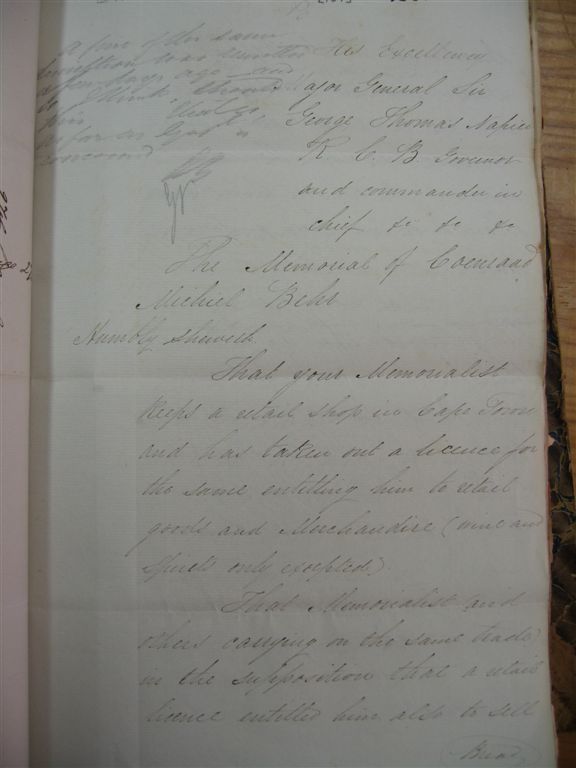 His Excellency
Major General Sir
George Thomas Napier
K. C. B Governor
and commander in
chief &c &c &c
The Memorial of Coenraad
Michiel Behr
Humbly sheweth
That your Memorialist
keeps a retail shop in Cape Town
and has taken out a licence for
the same entitling him to retail
goods and Merchandise (wine and
spirits only excepted).
That Memorialist and
others carrying on the same trade,
in the supposition that a retail
licence entitled him also to sell
Bread
A few of the same
description was
a few days ago and
so I think should
this
as far as Govt is
concerned